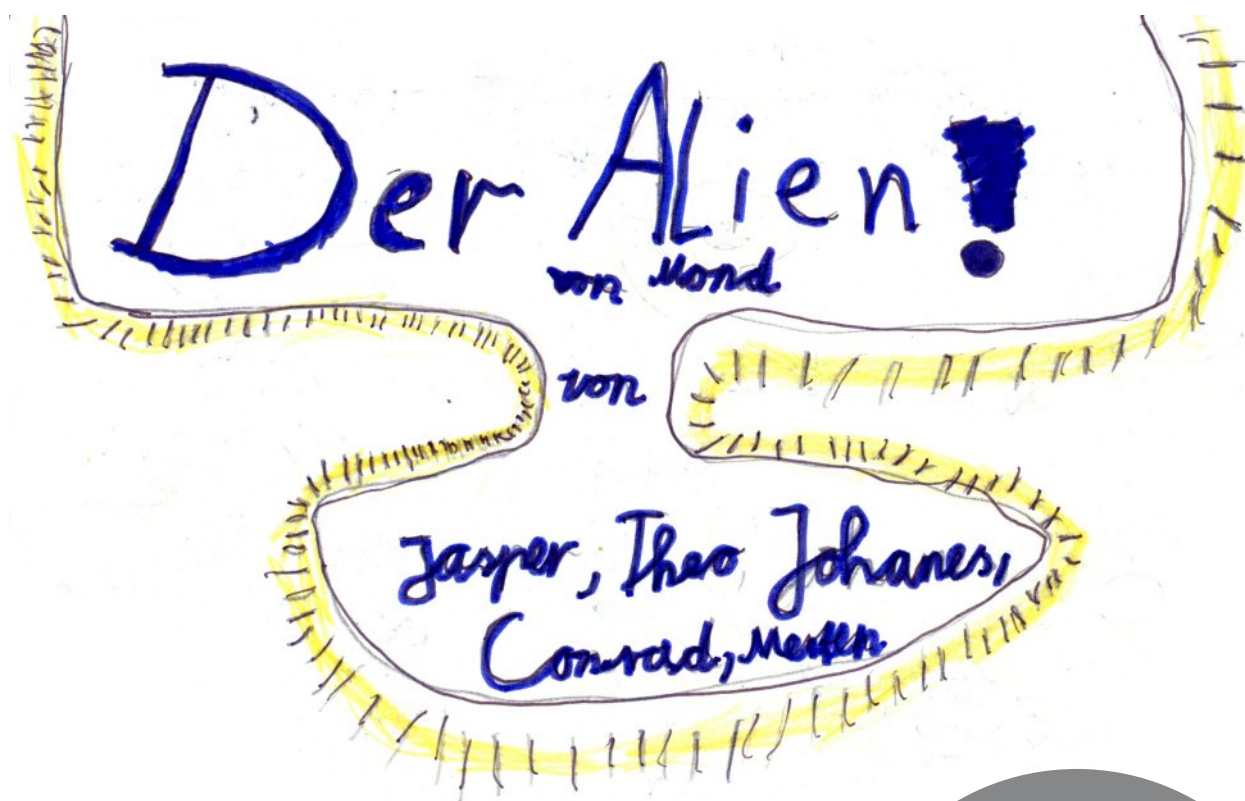 Der ALien!
von Mond
von
Jasper, Theo Johanes,
Conrad, Merten